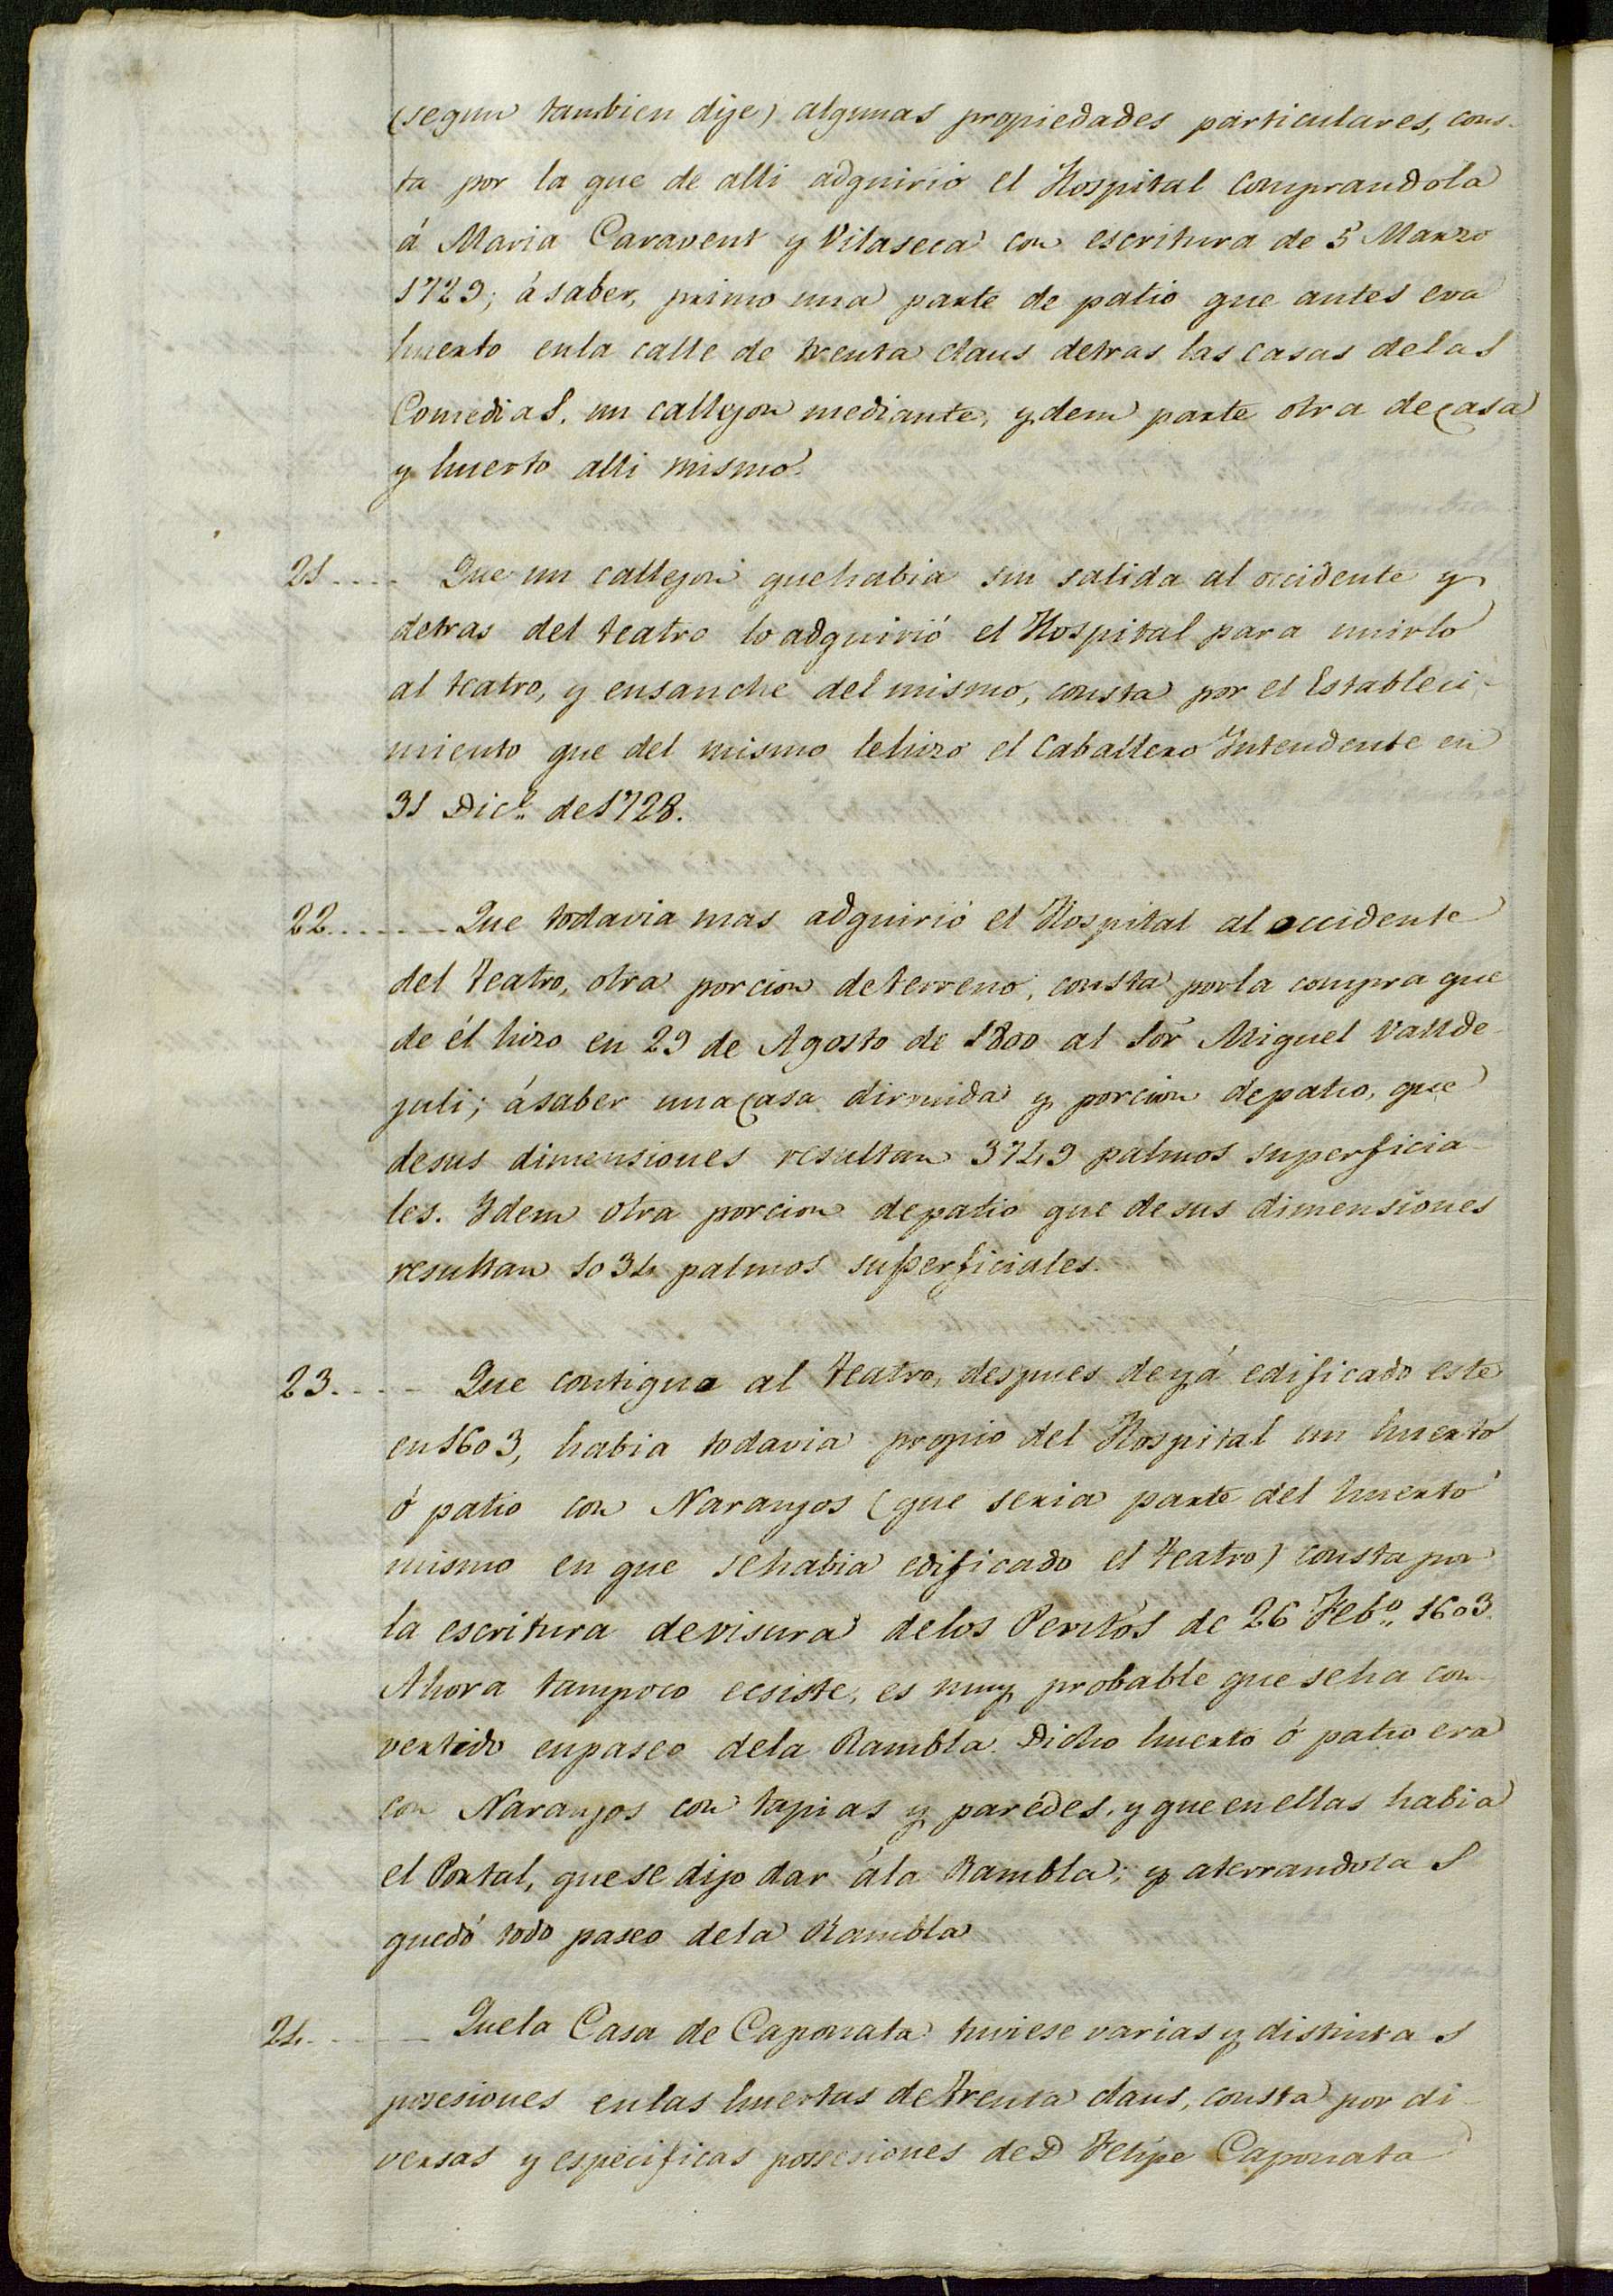 (segun tambien dije) algunas propiedades particulares, cons-
ta por la que de alli adquirió el Hospital comprandola
á Maria Caravent y Vilaseca con escritura de 5 Marzo
1729; á saber, primo una parte de patio que antes era
huerto enla calle de trenta claus detras las casas delas
Comedias, un callejon mediante, ydem parte otra de casa
y huerto alli mismo.
21.... Que un callejon quehabia sin salida al occidente y
detras del teatro lo adquirió el Hospital para unirlo
al teatro, y ensanche del mismo, consta por el Estableci-
miento que del mismo lehizo el Caballero Intendente en
31 Dice. de 1728.
22...... Que todavia mas adquirió el Hospital al occidente
del teatro, otra porcion deterreno, consta porla compra que
de él hizo en 29 de Agosto de 1800 al Sor Miguel Vallde-
juli; ásaber una casa dirruida y porcion depatio, que
desus dimensiones resultan 3749 palmos superficia-
les. Idem otra porcion depatio que desus dimensiones
resultan 1034 palmos superficiales.
23.... Que contigua al teatro, despues deyá edificado este
en 1603, habia todavia propio del Hospital un huerto
ó patio con Naranjos (que seria parte del huerto
mismo en que sehabia edificado el teatro) consta por
la escritura devisura delos Peritos de 26 Febo. 1603.
Ahora tampoco ecsiste, es muy probable que seha con-
vertido enpaseo dela Rambla. Dicho huerto ó patio era
con Naranjos con tapias y parédes, y que en ellas habia
el Portal, quese dijo dar ála Rambla; y aterrandolas
quedó todo paseo dela Rambla
24..... Quela Casa de Caponata tuviese varias y distintas
posesiones enlas huertas detrenta claus, consta por di-
versas y especificas possesiones de D Felipe Caponata